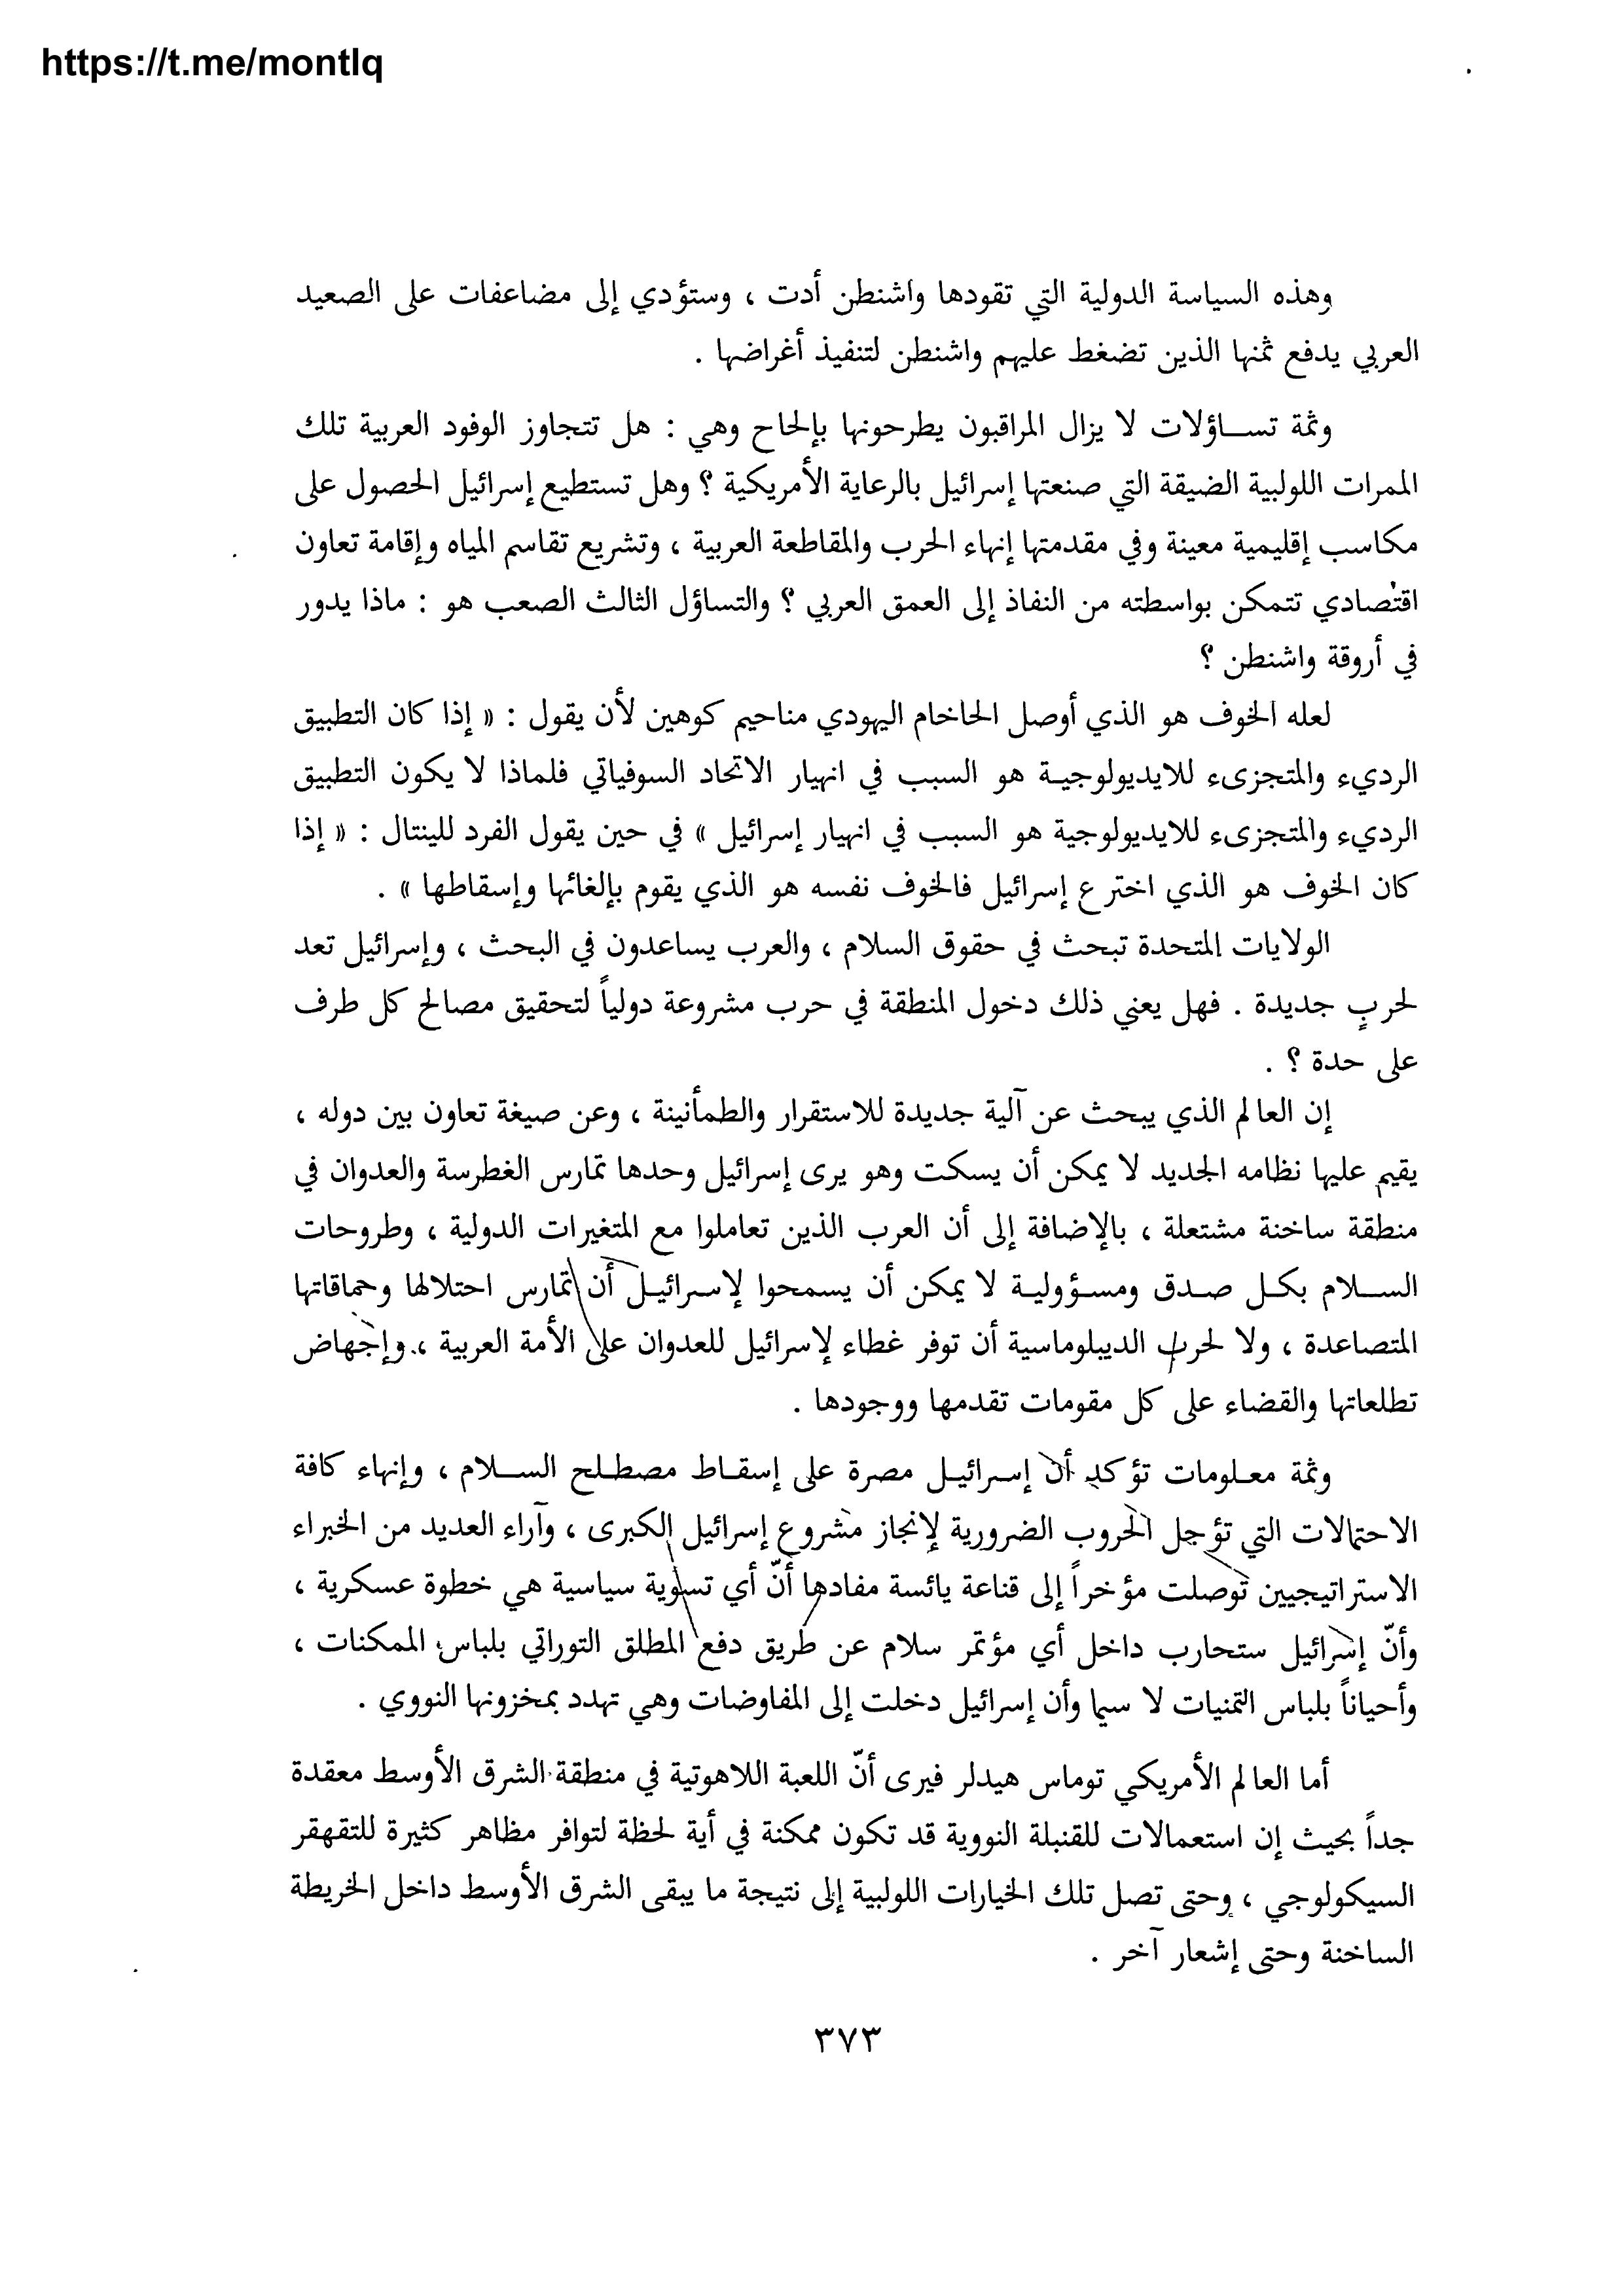 https://t.me/montlq
وهذه السياسة الدولية التي تقودها واشنطن أدت ، وستؤدي إلى مضاعفات على الصعيد
العربي يدفع ثمنها الذين تضغط عليهم واشنطن لتنفيذ أغراضها .
وثمة تساؤلات لا يزال المراقبون يطرحونها بإلحاح وهي : هل تتجاوز الوفود العربية تلك
الممرات اللولبية الضيقة التي صنعتها إسرائيل بالرعاية الأمريكية ؟ وهل تستطيع إسرائيل الحصول على
مكاسب إقليمية معينة وفي مقدمتها إنهاء الحرب والمقاطعة العربية ، وتشريع تقاسم المياه وإقامة تعاون
اقتصادي تتمكن بواسطته من النفاذ إلى العمق العربي ؟ والتساؤل الثالث الصعب هو : ماذا يدور
في أروقة واشنطن ؟
لعله الخوف هو الذي أوصل الحاخام اليهودي مناحيم كوهين لأن يقول : « إذا كان التطبيق
الرديء والمتجزىء للايديولوجية هو السبب في انهيار الاتحاد السوفياتي فلماذا لا يكون التطبيق
الرديء والمتجزىء للايديولوجية هو السبب في انهيار إسرائيل » في حين يقول الفرد للينتال : « إذا
كان الخوف هو الذي اخترع إسرائيل فالخوف نفسه هو الذي يقوم بإلغائها وإسقاطها » .
الولايات المتحدة تبحث في حقوق السلام ، والعرب يساعدون في البحث ، وإسرائيل تعد
لحربٍ جديدة . فهل يعني ذلك دخول المنطقة في حرب مشروعة دولياً لتحقيق مصالح كل طرف
على حدة ؟ .
إن العالم الذي يبحث عن آلية جديدة للاستقرار والطمأنينة ، وعن صيغة تعاون بين دوله ،
يقيم عليها نظامه الجديد لا يمكن أن يسكت وهو يرى إسرائيل وحدها تمارس الغطرسة والعدوان في
منطقة ساخنة مشتعلة ، بالإضافة إلى أن العرب الذين تعاملوا مع المتغيرات الدولية ، وطروحات
السلام بكل صدق ومسؤولية لا يمكن أن يسمحوا لإسرائيل أن تمارس احتلالها وحماقاتها
المتصاعدة ، ولا لحرب الديبلوماسية أن توفر غطاء لإسرائيل للعدوان على الأمة العربية ، وإجهاض
تطلعاتها والقضاء على كل مقومات تقدمها ووجودها .
وثمة معلومات تؤكد أن إسرائيل مصرة على إسقاط مصطلح السلام ، وإنهاء كافة
الاحتمالات التي تؤجل الحروب الضرورية لإنجاز مشروع إسرائيل الكبرى ، وآراء العديد من الخبراء
الاستراتيجيين توصلت مؤخراً إلى قناعة يائسة مفادها أنّ أي تسوية سياسية هي خطوة عسكرية ،
وأنّ إسرائيل ستحارب داخل أي مؤتمر سلام عن طريق دفع المطلق التوراتي بلباس الممكنات ،
وأحياناً بلباس التمنيات لا سيما وأن إسرائيل دخلت إلى المفاوضات وهي تهدد بمخزونها النووي .
أما العالم الأمريكي توماس هيدلر فيرى أنّ اللعبة اللاهوتية في منطقة الشرق الأوسط معقدة
جداً بحيث إن استعمالات للقنبلة النووية قد تكون ممكنة في أية لحظة لتوافر مظاهر كثيرة للتقهقر
السيكولوجي ، وحتى تصل تلك الخيارات اللولبية إلى نتيجة ما يبقى الشرق الأوسط داخل الخريطة
الساخنة وحتى إشعار آخر .
٣٧٣